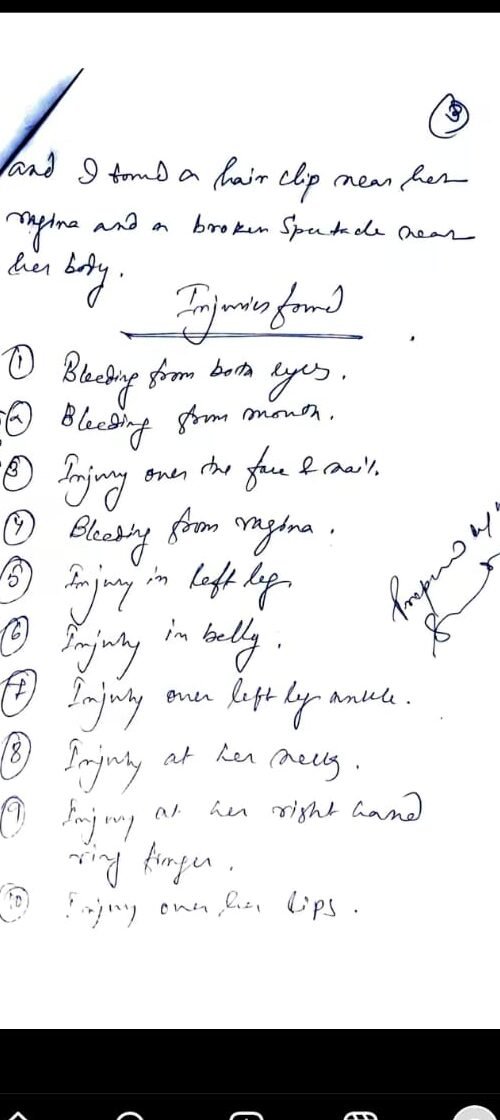 3
and I found a hair clip near her
vagina and a broken Spectacle near
her body.
Injuries found
1 Bleeding from both eyes.
2 Bleeding from mouth.
3 Injury over the face & nail.
4 Bleeding from vagina.
5 Injury in left leg.
6 Injury in belly.
7 Injury over left leg ankle.
8 Injury at her neck.
9 Injury at her right hand
ring finger.
10 Injury over her lips.
Prepared